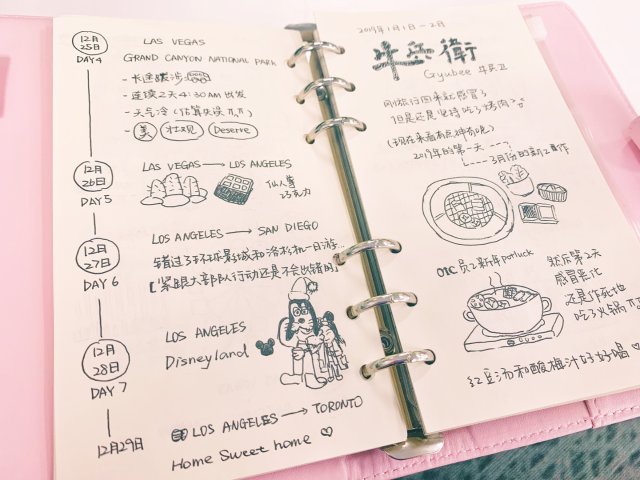 12月
25日
DAY4
LAS VEGAS
GRAND CANYON NATIONAL PARK
- 长途跋涉
- 连续2天4:30AM出发
- 天气冷(估算失误 π.π)
- 美 壮观 Deserve
12月
26日
DAY5
LAS VEGAS → LOS ANGELES
仙人掌
巧克力
12月
27日
DAY 6
LOS ANGELES → SAN DIEGO
错过了环球影城和洛杉矶一日游...
[紧跟大部队行动还是不会出错的]
12月
28日
DAY 7
LOS ANGELES
Disneyland
12月29日
LOS ANGELES → TORONTO
Home Sweet home ♡
2019年1月1日-2日
牛兵衛
Gyubee 牛兵卫
刚旅行回来就感冒了
但是还是坚持吃了烤肉?
(现在来看有点神奇呢)
2019年的第一天
3月份的新工作
员工新年potluck
然后第2天
感冒恶化
还是作死地
吃了火锅 π.π
红豆汤和酸梅汁好好喝 ♡